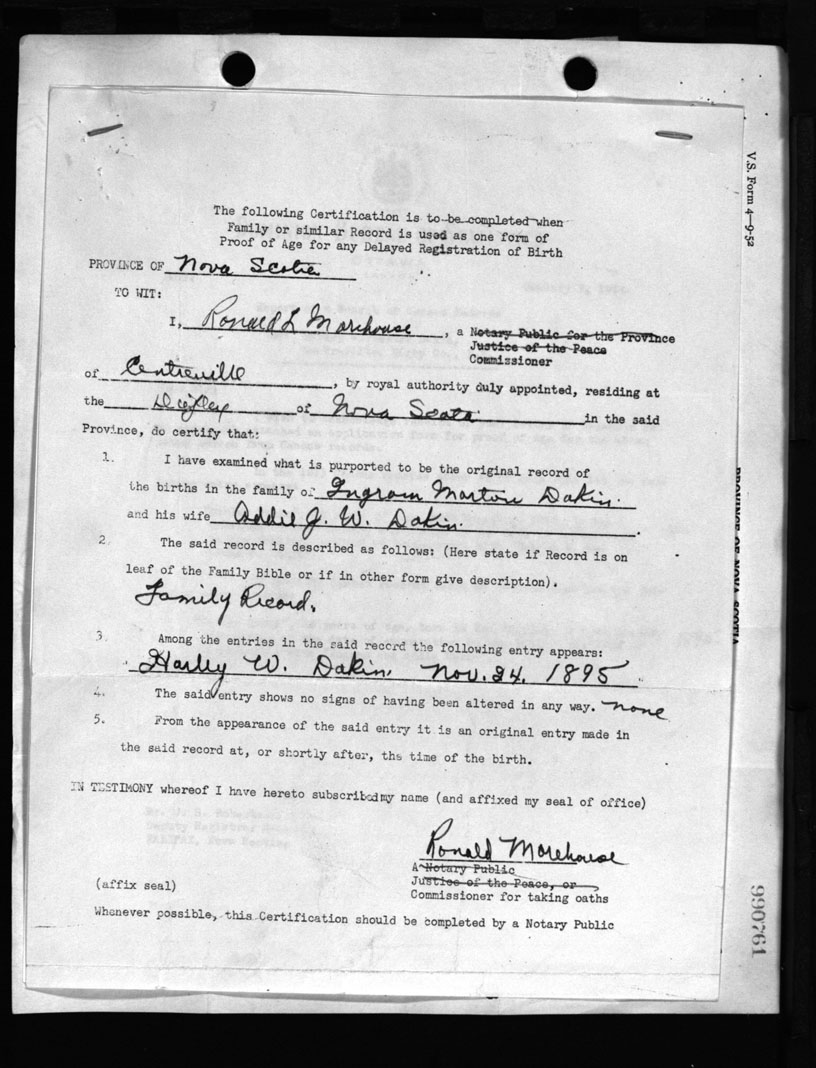 The following Certification is to be completed when
Family or similar Record is used as one form of
Proof of Age for any Delayed Registration of Birth
PROVINCE OF Nova Scotia
TO WIT:
I, Ronald L Morehouse, a Notary Public for the Province
Justice of the Peace
Commissioner
of Centreville, by royal authority duly appointed, residing at
the Digby of Nova Scota in the said
Province, do certify that:
1. I have examined what is purported to be the original record of
the births in the family of Ingram Morton Dakin.
and his wife Addie J. W. Dakin.
2. The said record is described as follows: (Here state if Record is on
leaf of the Family Bible or if in other form give description).
Family Record.
3. Among the entries in the said record the following entry appears:
Harley W. Dakin, Nov. 24. 1895
4. The said entry shows no signs of having been altered in any way. none
5. From the appearance of the said entry it is an original entry made in
the said record at, or shortly after, the time of the birth.
IN TESTIMONY whereof I have hereto subscribed my name (and affixed my seal of office)
Ronald Morehouse
A Notary Public
Justice of the Peace, or
(affix seal)
Commissioner for taking oaths
Whenever possible, this Certification should be completed by a Notary Public
V.S. Form 4—9-52
PROVINCE OF NOVA SCOTIA
990761